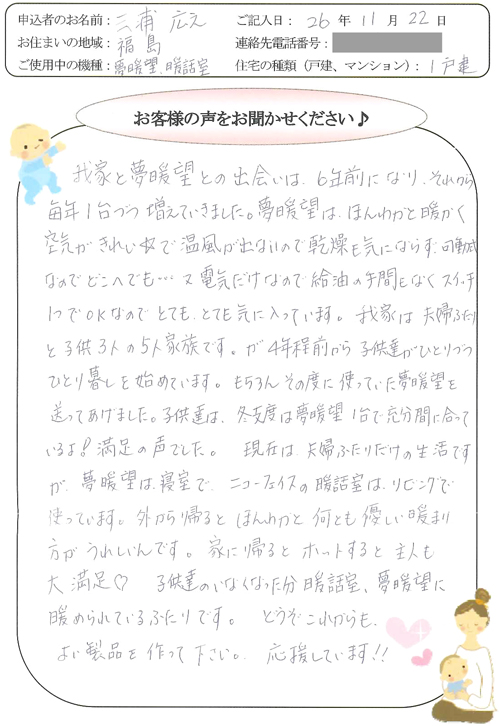 申込者のお名前： 三浦 広え ご記入日： 26 年 11 月 22 日
お住まいの地域： 福島 連絡先電話番号：
ご使用中の機種： 夢暖望、暖話室 住宅の種類（戸建、マンション）： 1戸建
お客様の声をお聞かせください♪
我家と夢暖望との出会いは、6年前になり、それから
毎年1台づつ増えていきました。夢暖望は、ほんわかと暖かく
空気がきれいなので温風が出ないので乾燥も気にならず、自動式
なのでどこへでも…又電気だけなので給油の手間もなくスイッチ
1つでOKなのでとても、とても気に入っています。我家は夫婦ふたり
と子供3人の5人家族です。が4年程前から子供達がひとりづつ
ひとり暮しを始めています。もちろんその度に使っていた夢暖望を
送ってあげました。子供達は、冬支度は夢暖望1台で充分間に合って
いるよ！満足の声でした。現在は、夫婦ふたりだけの生活です
が、夢暖望は寝室で、ニューフェイスの暖話室は、リビングで
使っています。外から帰るとほんわかと何とも優しい暖まり
方がうれしいんです。家に帰るとホットすると主人も
大満足♡ 子供達のいなくなった分暖話室、夢暖望に
暖められているふたりです。どうぞこれからも、
よい製品を作って下さい。応援しています!!